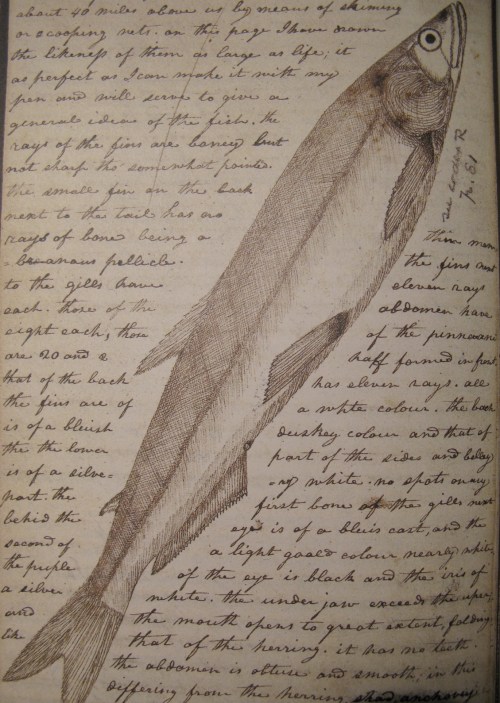 about 40 miles above us by means of skiming
or scooping nets. on this page I have drawn
the likeness of them as large as life; it
as perfect as I can make it with my
pen and will serve to give a
general idea of the fish. the
rays of the fins are boney but
not sharp tho somewhat pointed.
the small fin on the back
next to the tail has no
rays of bone being a thin mem
branous pellicle. the fins next
to the gills have eleven rays
each. those of the abdomen have
eight each, those of the pinnaani
are 20 and 2 half formed in front
that of the back has eleven rays. all
the fins are of a white colour. the back
is of a bluish duskey colour and that of
the the lower part of the sides and belley
is of a silve- ry white. no spots on any
part. the first bone of the gills next
behid the eye is of a bluis cast, and the
second of a light goald colour nearly white
the puple of the eye is black and the iris of
a silver white. the under jaw exceeds the uper;
and the mouth opens to great extent, folding
like that of the herring. it has no teeth.
the abdomen is obtuse and smooth; in this
differing from the herring, shad, anchovey
see codex R